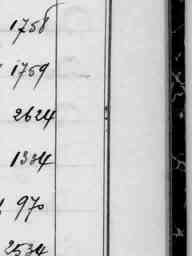 1758
1759
2624
1334
970
2534